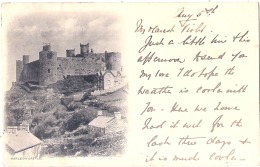 Aug 5th
My dearest
Just a little line this
afternoon to send you
my love I do hope the
weather is cooler with
you. Here we have
had it wet for the
last three days &
it is much cooler.
HARLECH CASTLE